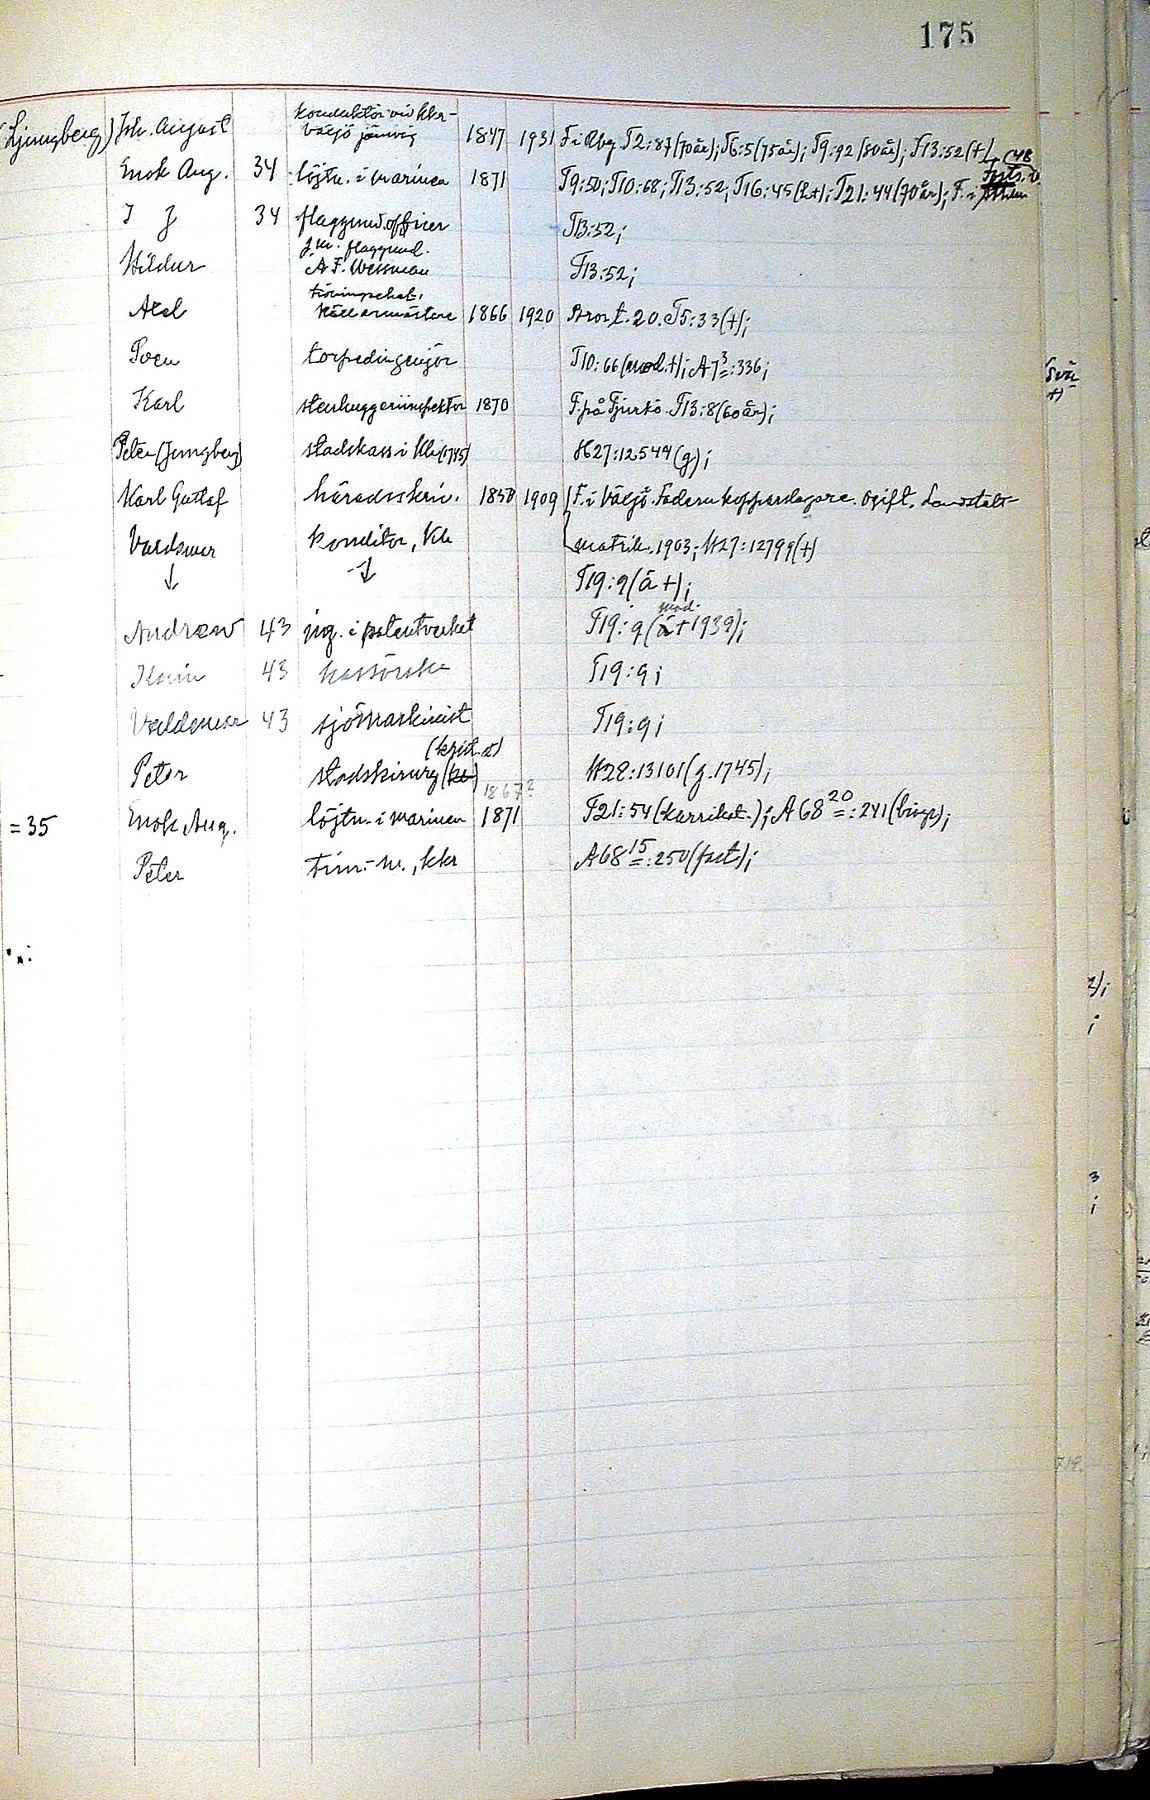 175
(Ljungberg) Joh. August konduktör vid Kkr- 1847 1931 F. i Rby. T2:87(70år); T6:5(75år); T9:92(80år); T13:52(+)
Växjö järnväg
Enok Aug. 34 löjtn. i marinen 1871 T9:50; T10:68; T13:52; T16:45(h+); T21:44(70år); F. i
J J 34 flaggund.officer T13:52;
Hildur g.m. flaggund. T13:52;
A F. Wessman
Axel källarmästare 1866 1920 Aront. 20. T5:33(+);
Sven torpedingenjör T10:66(mod.+); A7 3=:336;
Karl stenhuggeriinspektor 1870 F. på Tjurkö. T13:8(60år);
Peter (Jungberg) stadskass. i Kkr (1745) H27:12544(g);
Karl Gustaf häradsskriv. 1850 1909 F. i Växjö. Fadern kopparslagare. Ogift. Landstatsmatrik. 1903; H27:12799(+)
Valdemar konditor, Kkr
↓ ↓ T19:9(ä+);
Andrew 43 ing. i patentverket T19:9(mod. +1939);
Karin 43 kassörska T19:9;
Valdemar 43 sjömaskinist T19:9;
(krist.st)
Peter stadskirurg H28:13101(g.1745);
1867?
=35 Enok Aug. löjtn. i marinen 1871 T21:54(karrikat.); A68 20=:241(biogr);
Peter tim.-m., Kkr A68 15=:250(fast);